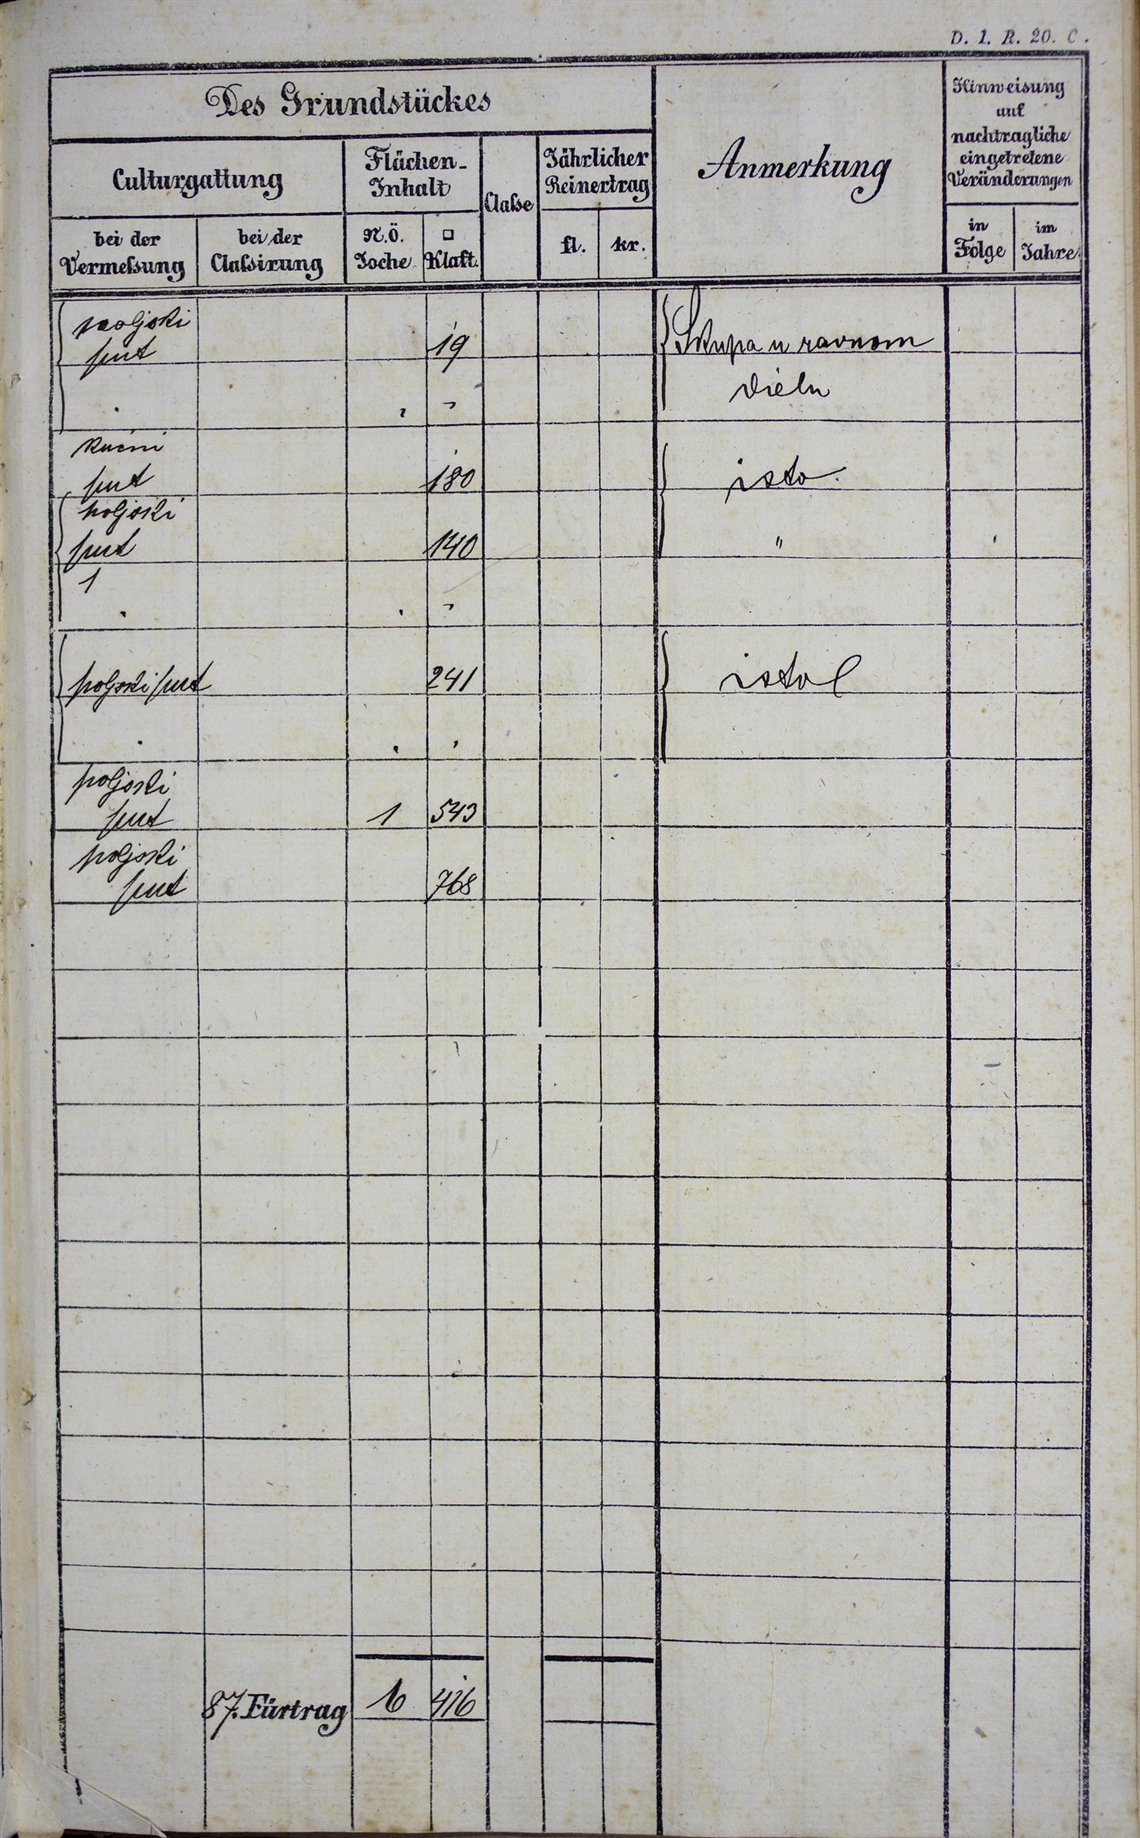 D. 1. R. 20. C.
Des Grundstückes
Anmerkung
Hinweisung
auf
nachträgliche
eingetretene
Veränderungen
Culturgattung
Flächen-
Inhalt
Classe
Jährlicher
Reinertrag
bei der
Vermessung
bei der
Classirung
N.Ö.
Joche
□
Klaft.
fl.
kr.
in
Folge
im
Jahre
poljski
put 19 Skupa u ravnom
dielu
kućni
put 180 isto
poljski
put 140 "
1
poljski put 241 isto
poljski
put 1 543
poljski
put 768
87. Fürtrag 6 416